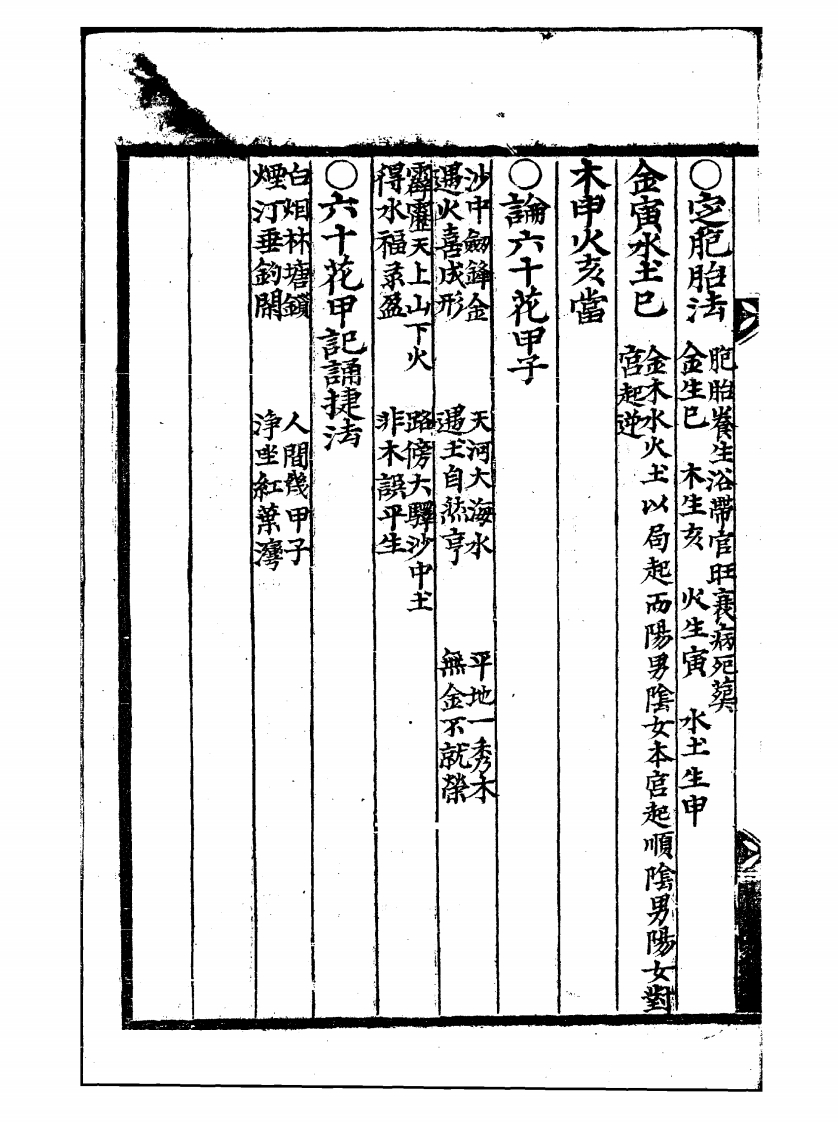 〇定胞胎法
胞胎養生浴帶官旺衰病死葬
金生巳 木生亥 火生寅 水土生申
金寅水土巳
金木水火土以局起而陽男陰女本宮起順陰男陽女對
宮起逆
木申火亥當
〇論六十花甲子
沙中劔鋒金 天河大海水 平地一秀木
遇火喜成形 遇土自然亨 無金不就榮
霹靂天上山下火 路傍大驛沙中土
得水福录盈 非木誤平生
〇六十花甲記誦捷法
白烟林塘鎖 人間幾甲子
煙汀垂釣閑 浄坐紅葉灣